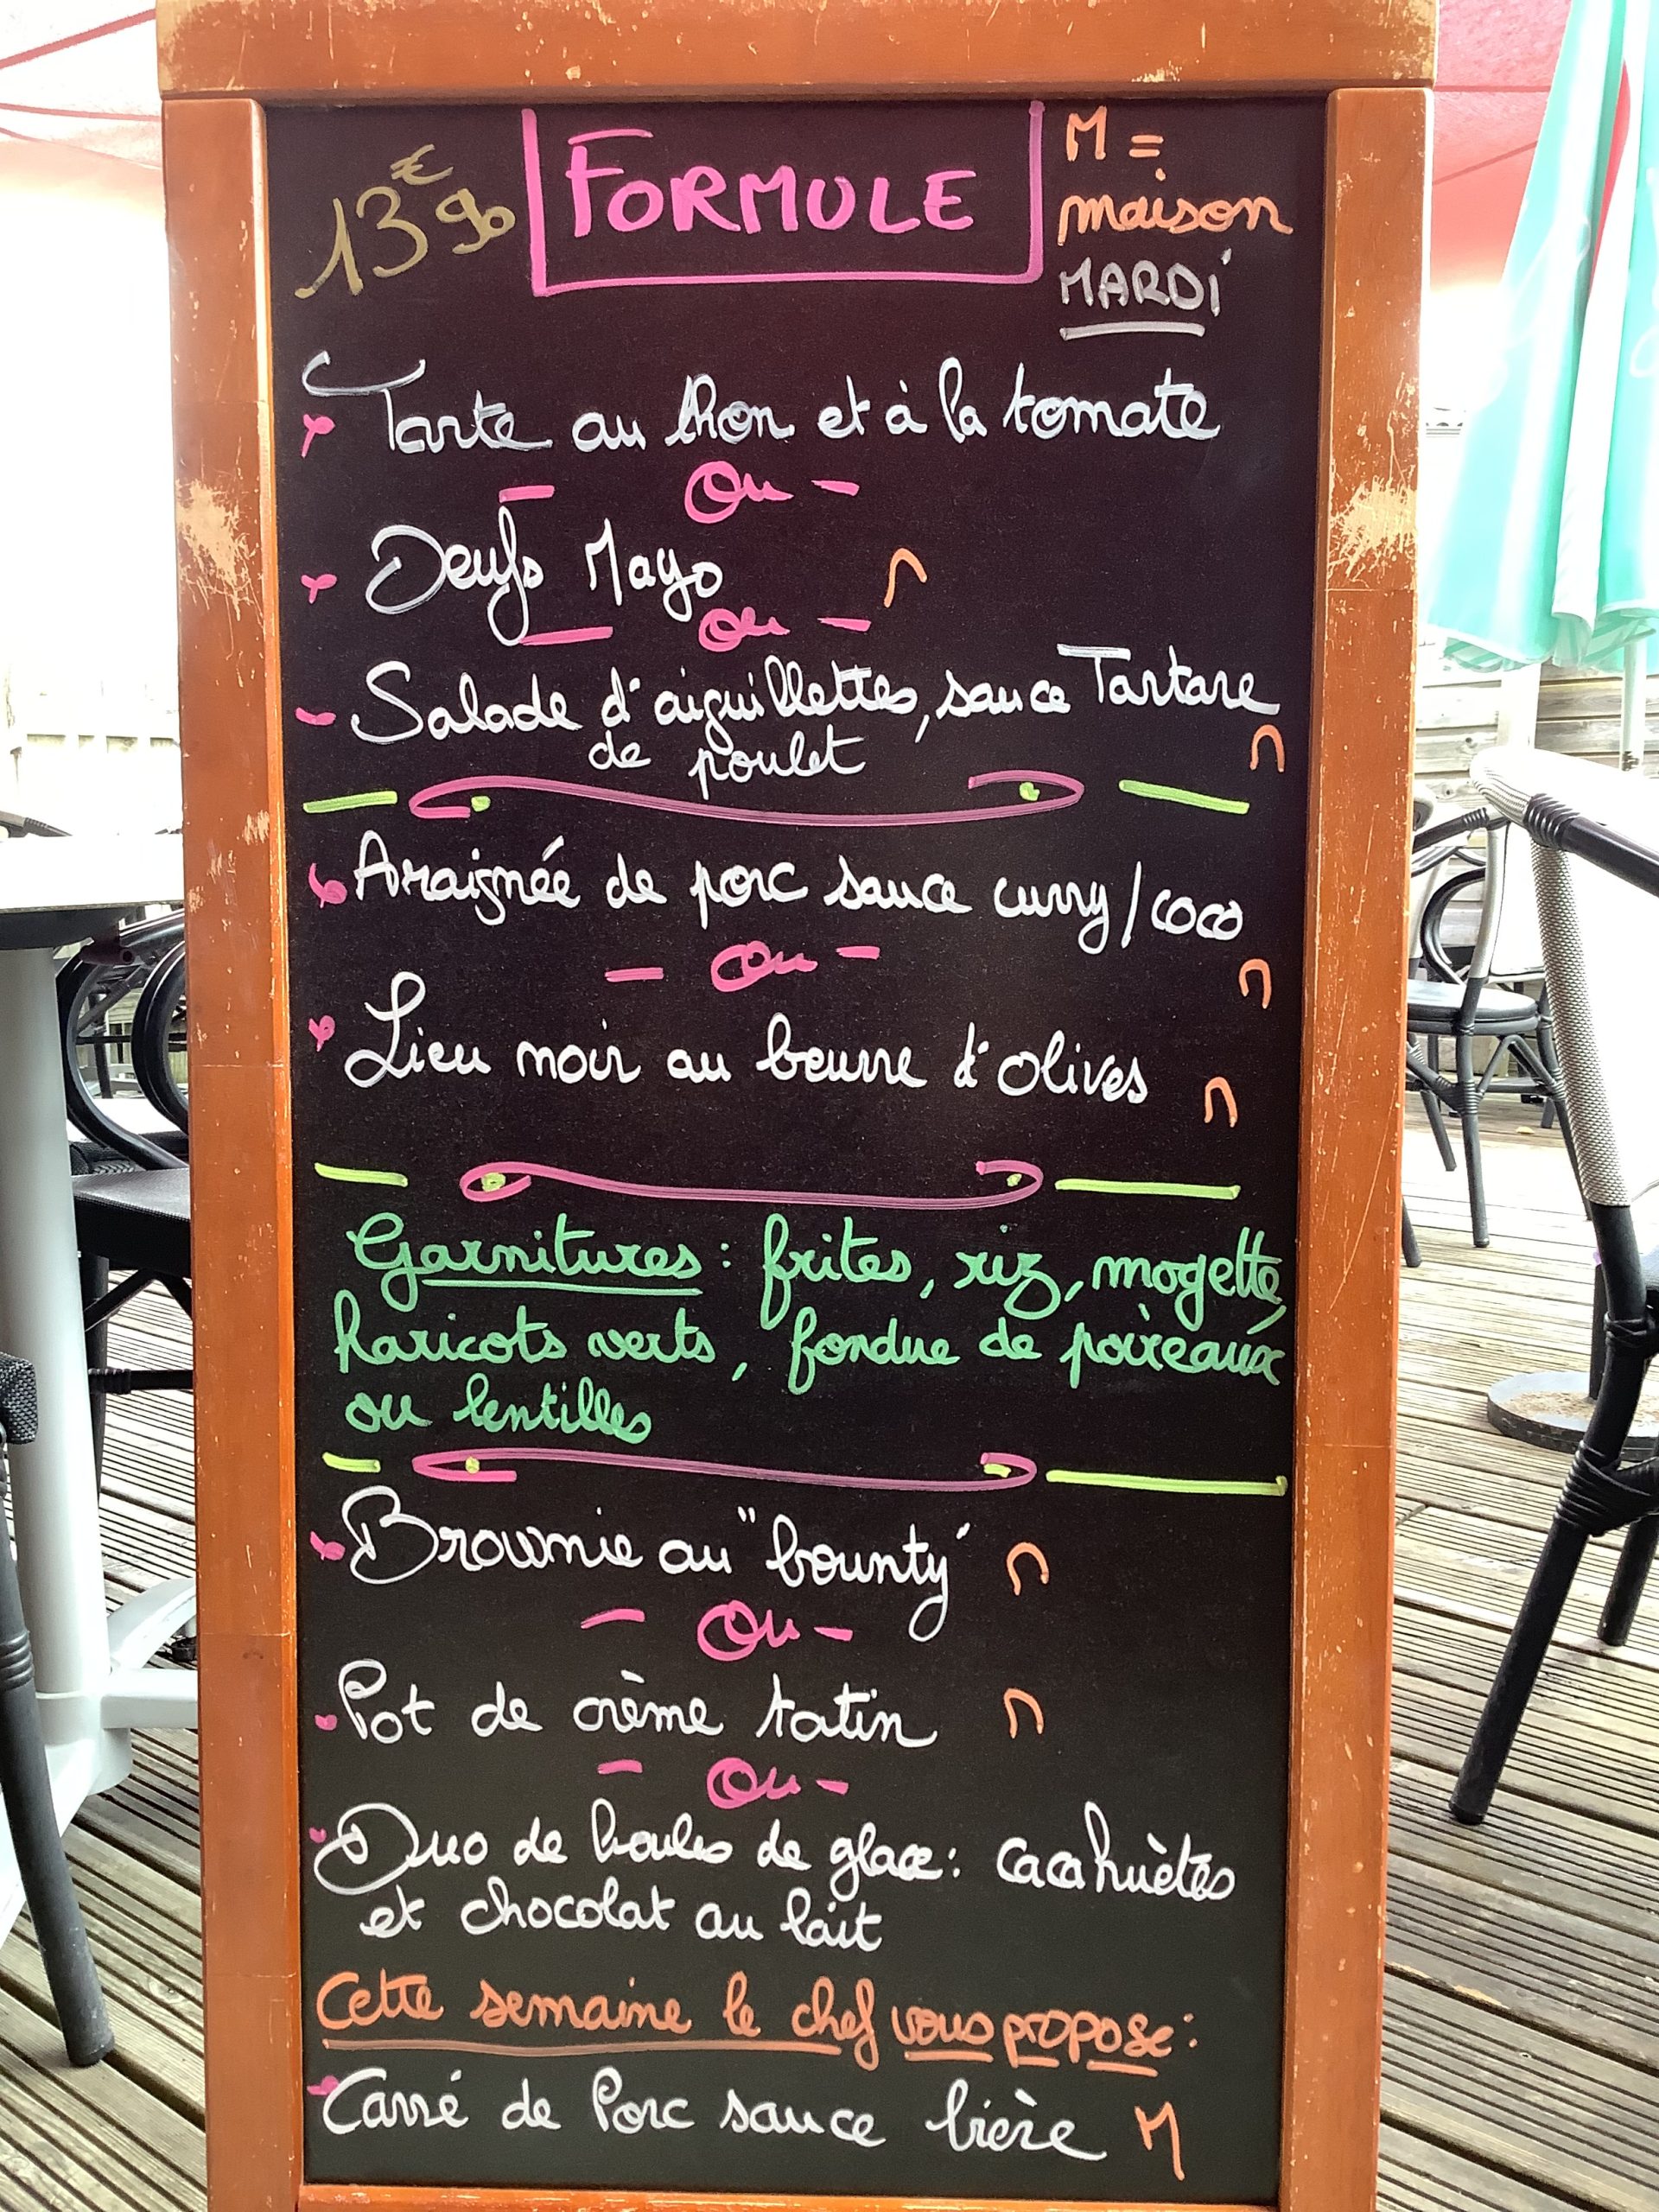 13€90 FORMULE M =
maison
MARDI
Tarte au thon et à la tomate
- Ou -
Oeufs Mayo M
- Ou -
Salade d'aiguillettes, sauce Tartare
de poulet M
Araignée de porc sauce curry/coco
- Ou - M
Lieu noir au beurre d'olives M
Garnitures : frites, riz, mogette,
haricots verts, fondue de poireaux
ou lentilles
Brownie au "bounty" M
- Ou -
Pot de crème tatin M
- Ou -
Duo de boules de glace : cacahuètes
et chocolat au lait
Cette semaine le chef vous propose :
Carré de Porc sauce bière M